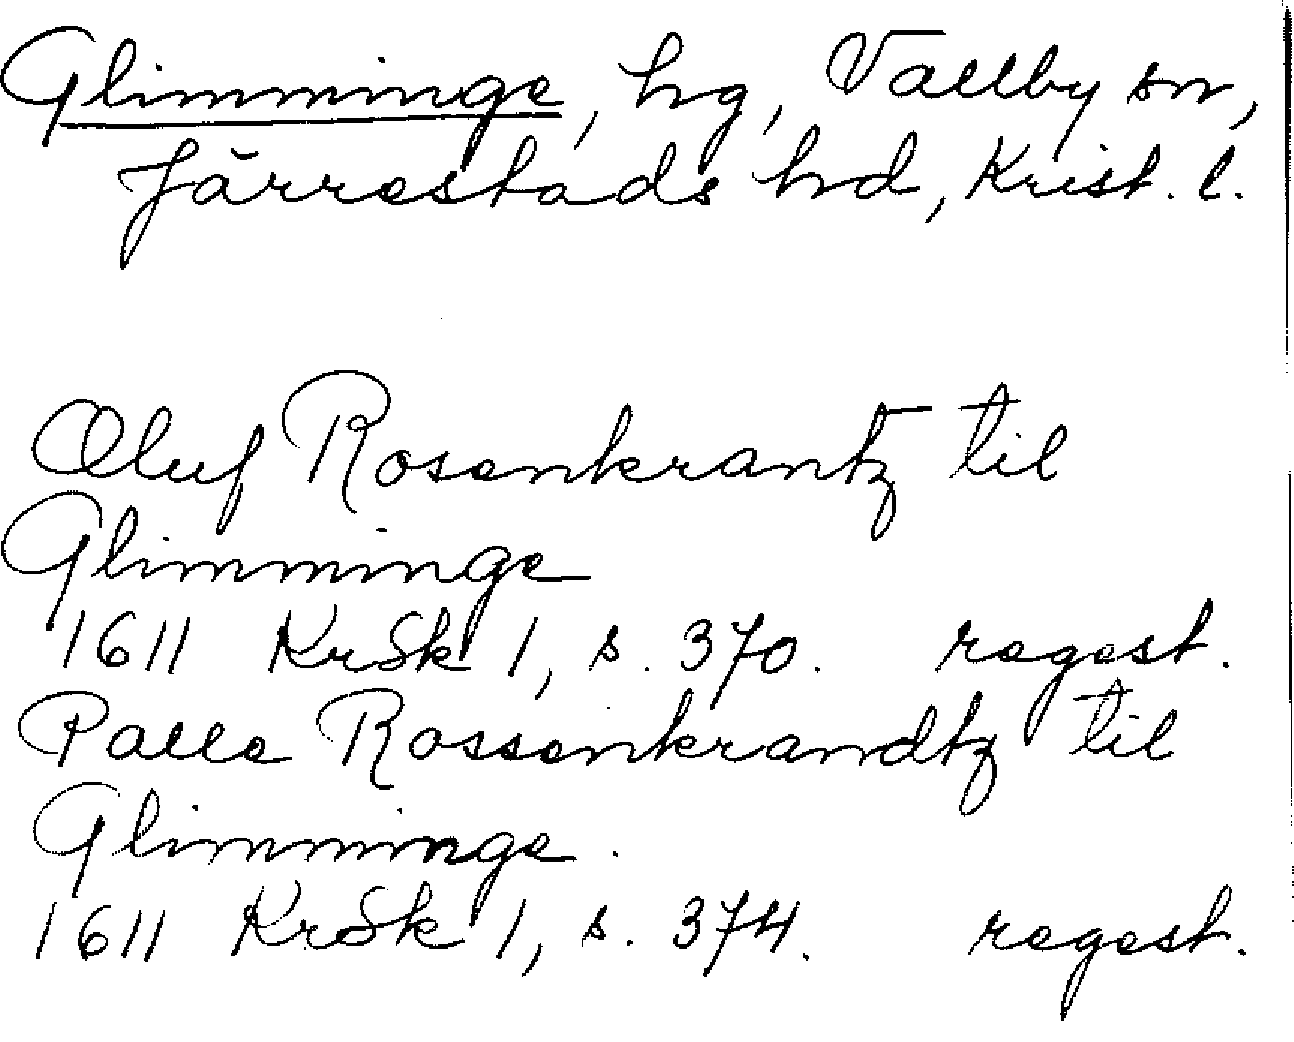 Glimminge, hg, Vallby sn,
Järrestads hd, Krist. l.
Oluf Rosenkrantz til
Glimminge
1611 KrSk 1, s. 370. regest.
Palle Rossenkrandtz til
Glimminge.
1611 KrSk 1, s. 374. regest.